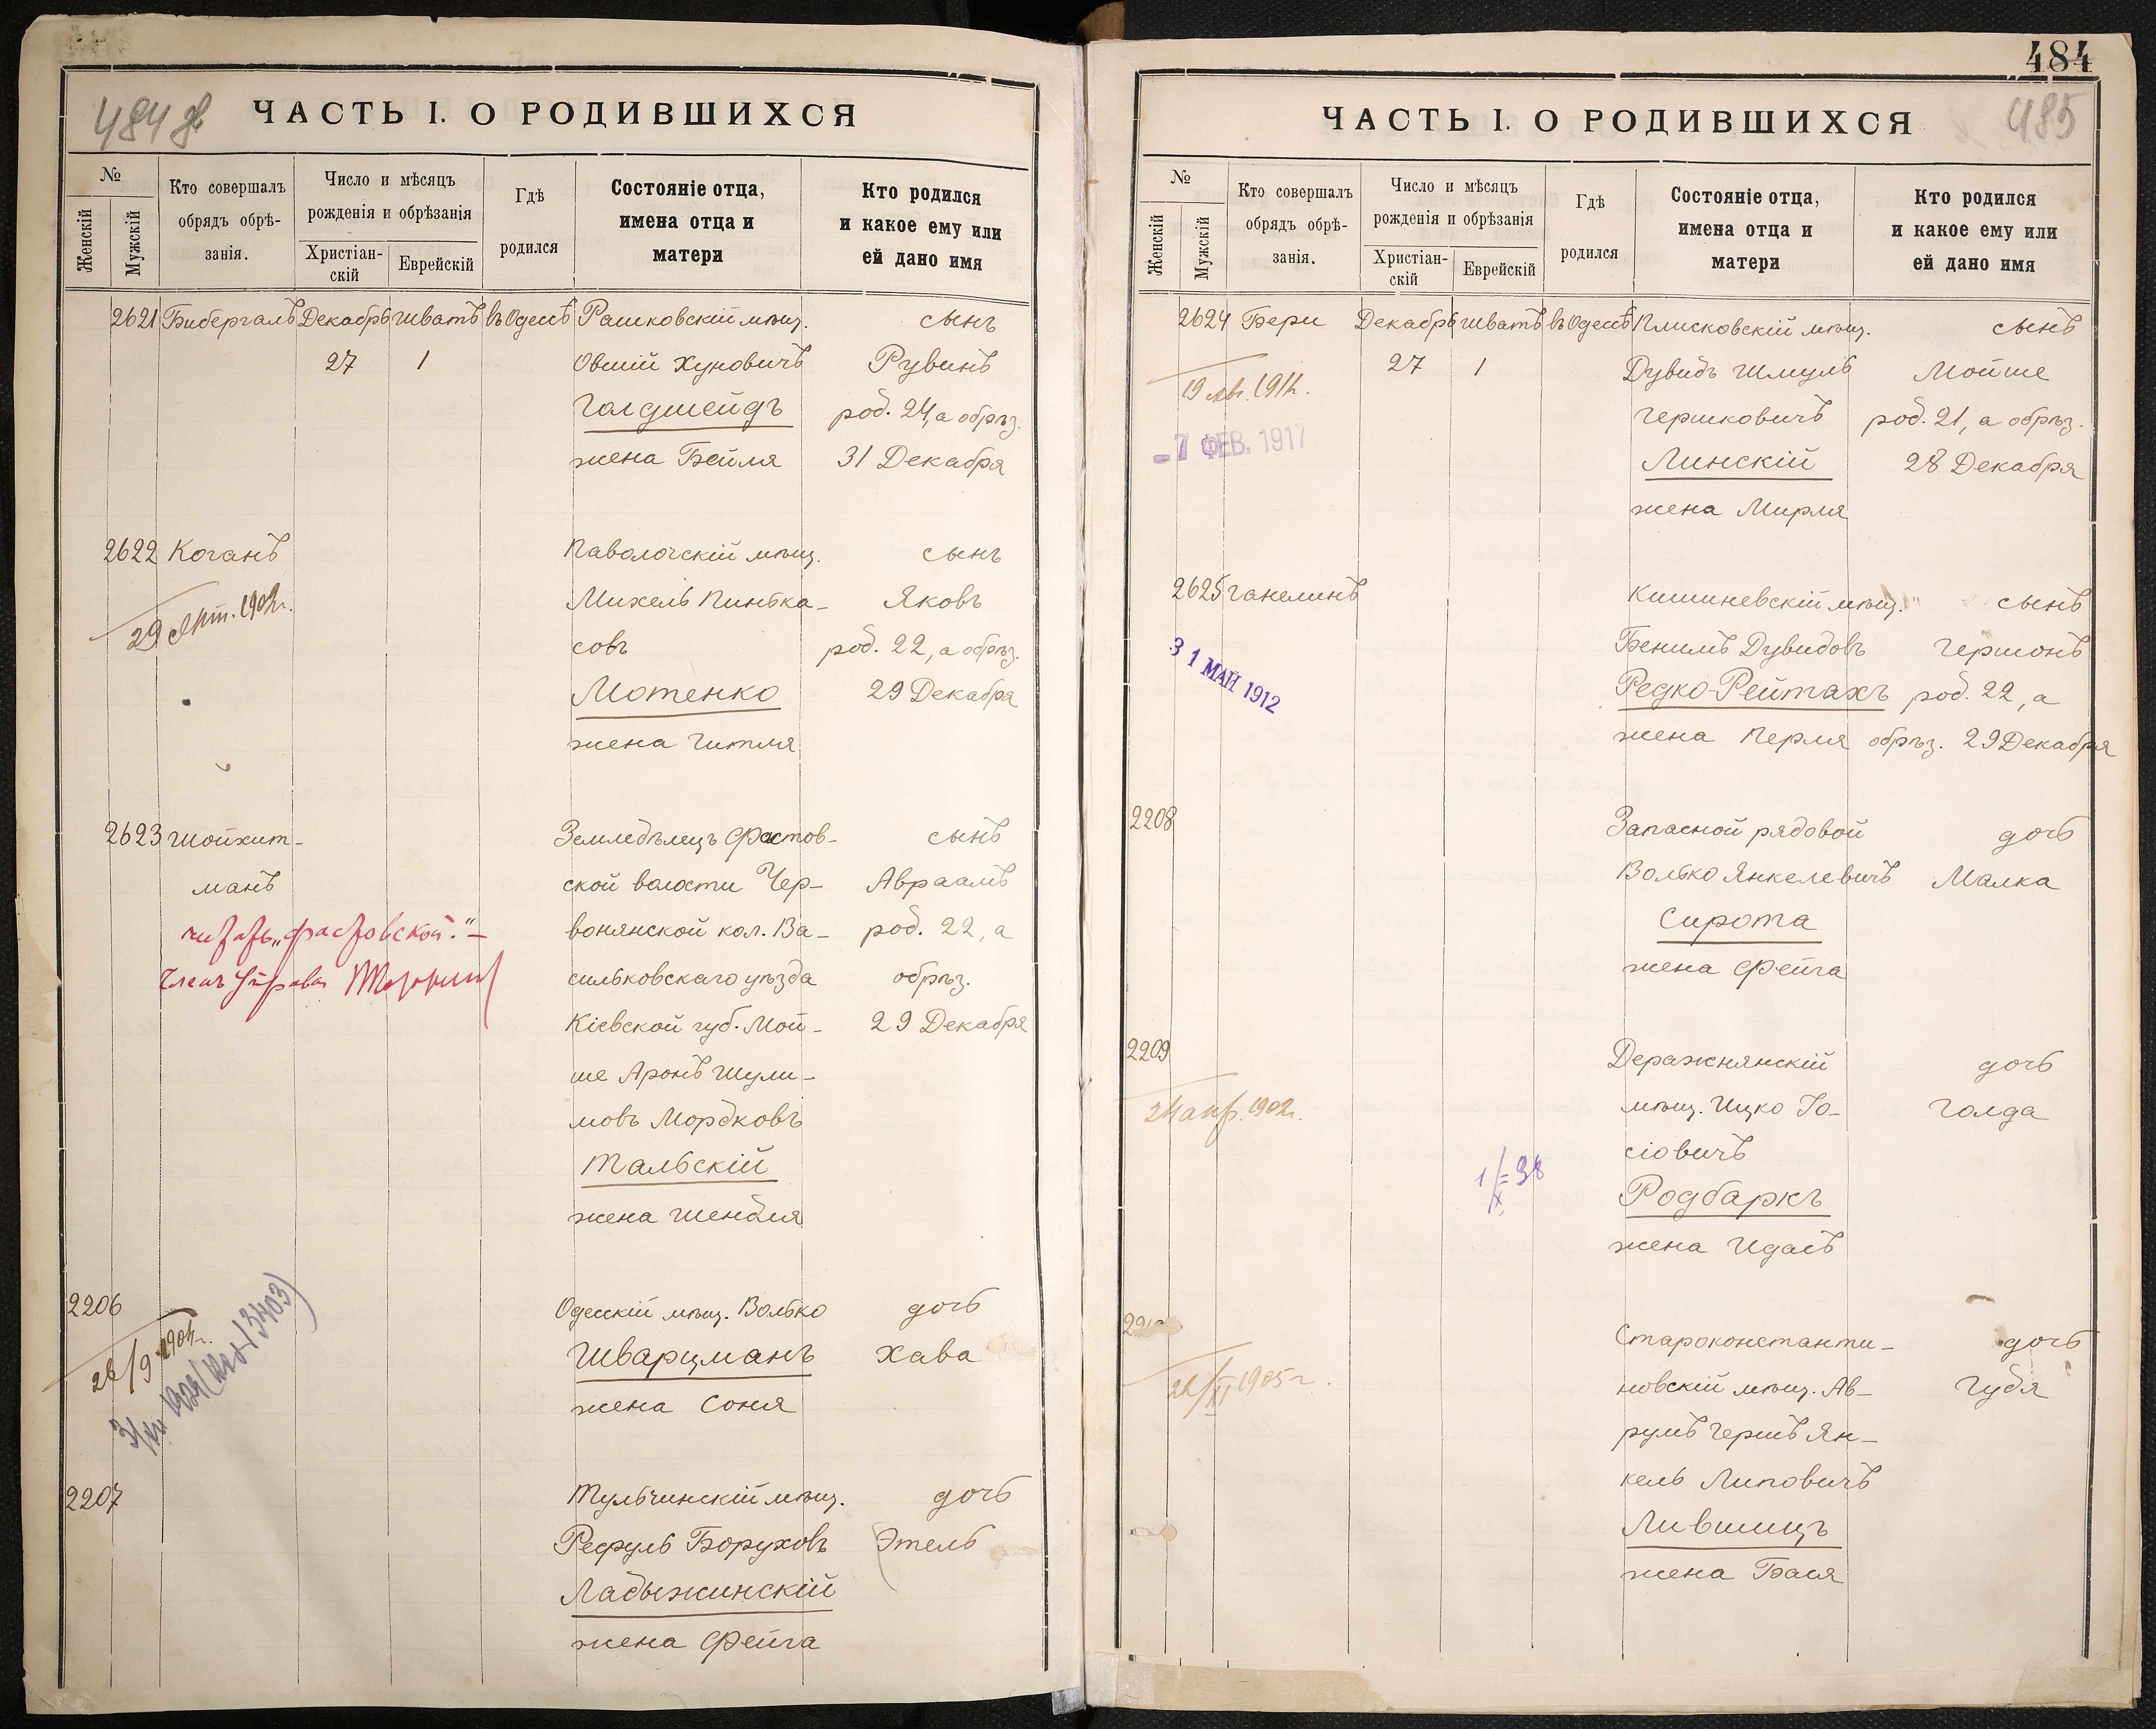 484 об
ЧАСТЬ I. О РОДИВШИХСЯ
№
Женскій
Мужскій
Кто совершалъ обрядъ обрѣ-
занія.
Число и мѣсяцъ
рожденія и обрѣзанія
Христіан-
скій
Еврейскій
Гдѣ
родился
Состояніе отца,
имена отца и
матери
Кто родился
и какое ему или
ей дано имя
2621 Бибергалъ Декабрь Шватъ въ Одессѣ Рашковскій мѣщ. сынъ
27 1 Овшій Хуновичъ Рувинъ
Голдшейдъ род. 24, а обрѣз.
жена Бейля 31 Декабря
2622 Коганъ Паволочскій мѣщ. сынъ
Михель Пинька- Яковъ
29 1902г.
совъ род. 22, а обрѣз.
Мотенко 29 Декабря
жена Гитля
2623 Шойхит- Земледѣлецъ Фастов- сынъ
манъ ской волости Чер- Авраамъ
читать „Фастовской".-
вонянской кол. Ва- род. 22, а
Членъ Управы
сильковскаго уѣзда обрѣз.
Кіевской губ. Мой- 29 Декабря
ше Аронъ Шули-
мовъ Мордковъ
Тальскій
жена Шендля
2206 Одесскій мѣщ. Волько дочь
Шварцманъ Хава
жена Соня
2207 Тульчинскій мѣщ. дочь
Рефуль Боруховъ Этель
Ладыжинскій
жена Фейга
484
485
ЧАСТЬ I. О РОДИВШИХСЯ
№
Женскій
Мужскій
Кто совершалъ
обрядъ обрѣ-
занія.
Число и мѣсяцъ
рожденія и обрѣзанія
Христіан-
скій
Еврейскій
Гдѣ
родился
Состояніе отца,
имена отца и
матери
Кто родился
и какое ему или
ей дано имя
2624 Бери Декабрь Шватъ въ Одессѣ Плисковскій мѣщ. сынъ
27 1 Дувидъ Шмуль Мойше
Гершковичъ род. 21, а обрѣз.
-7 ФЕВ. 1917
Линскій 28 Декабря
жена Мирля
2625 Ганелинъ Кишиневскій мѣщ. сынъ
31 МАЙ 1912
Бенимъ Дувидовъ Гершонъ
Редко-Рейтахъ род. 22, а
жена Перля обрѣз. 29 Декабря
2208 Запасной рядовой дочь
Волько Янкелевичъ Малка
Сирота
жена Фейга
2209 Деражнянскій дочь
24 апр. 1902г.
мѣщ. Ицко Іо- Голда
сіовичъ
Родбаркъ
жена Идасъ
Староконстанти- дочь
новскій мѣщ. Ав- Гудя
1905г.
румъ Гершъ Ян-
кель Липовичъ
Лившицъ
жена Бася